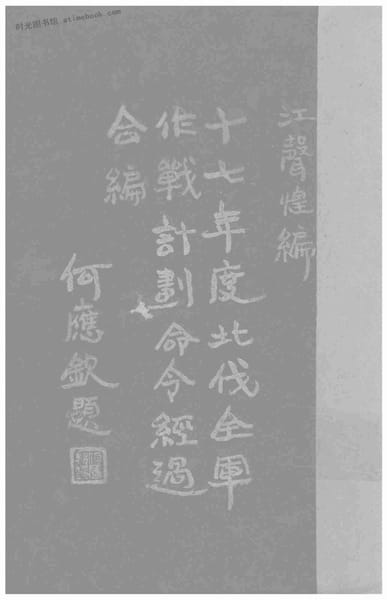 时光图书馆 atimebook.com
江聲煌編
十七年度北伐全軍
作戰計劃命令經過
合編
何應欽題